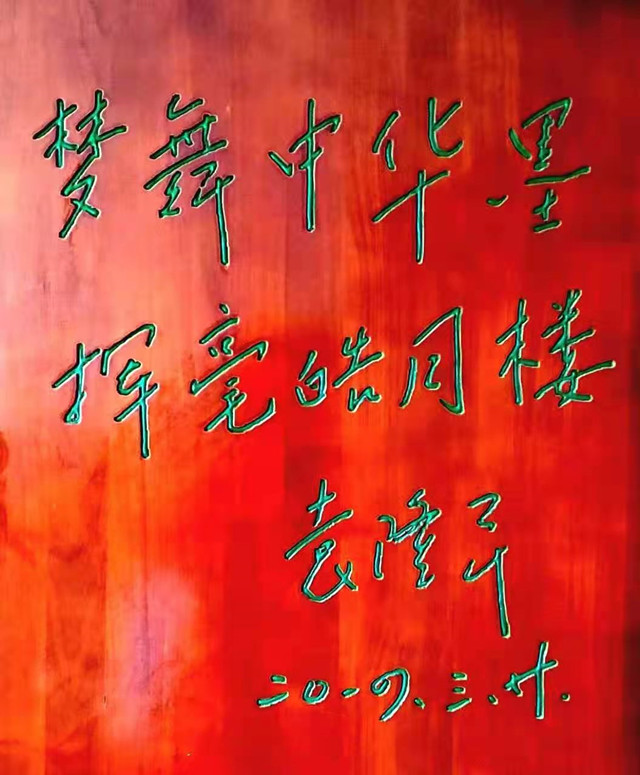 梦舞中华墨
挥毫皓月楼
袁隆平
二〇一四.三.廿.